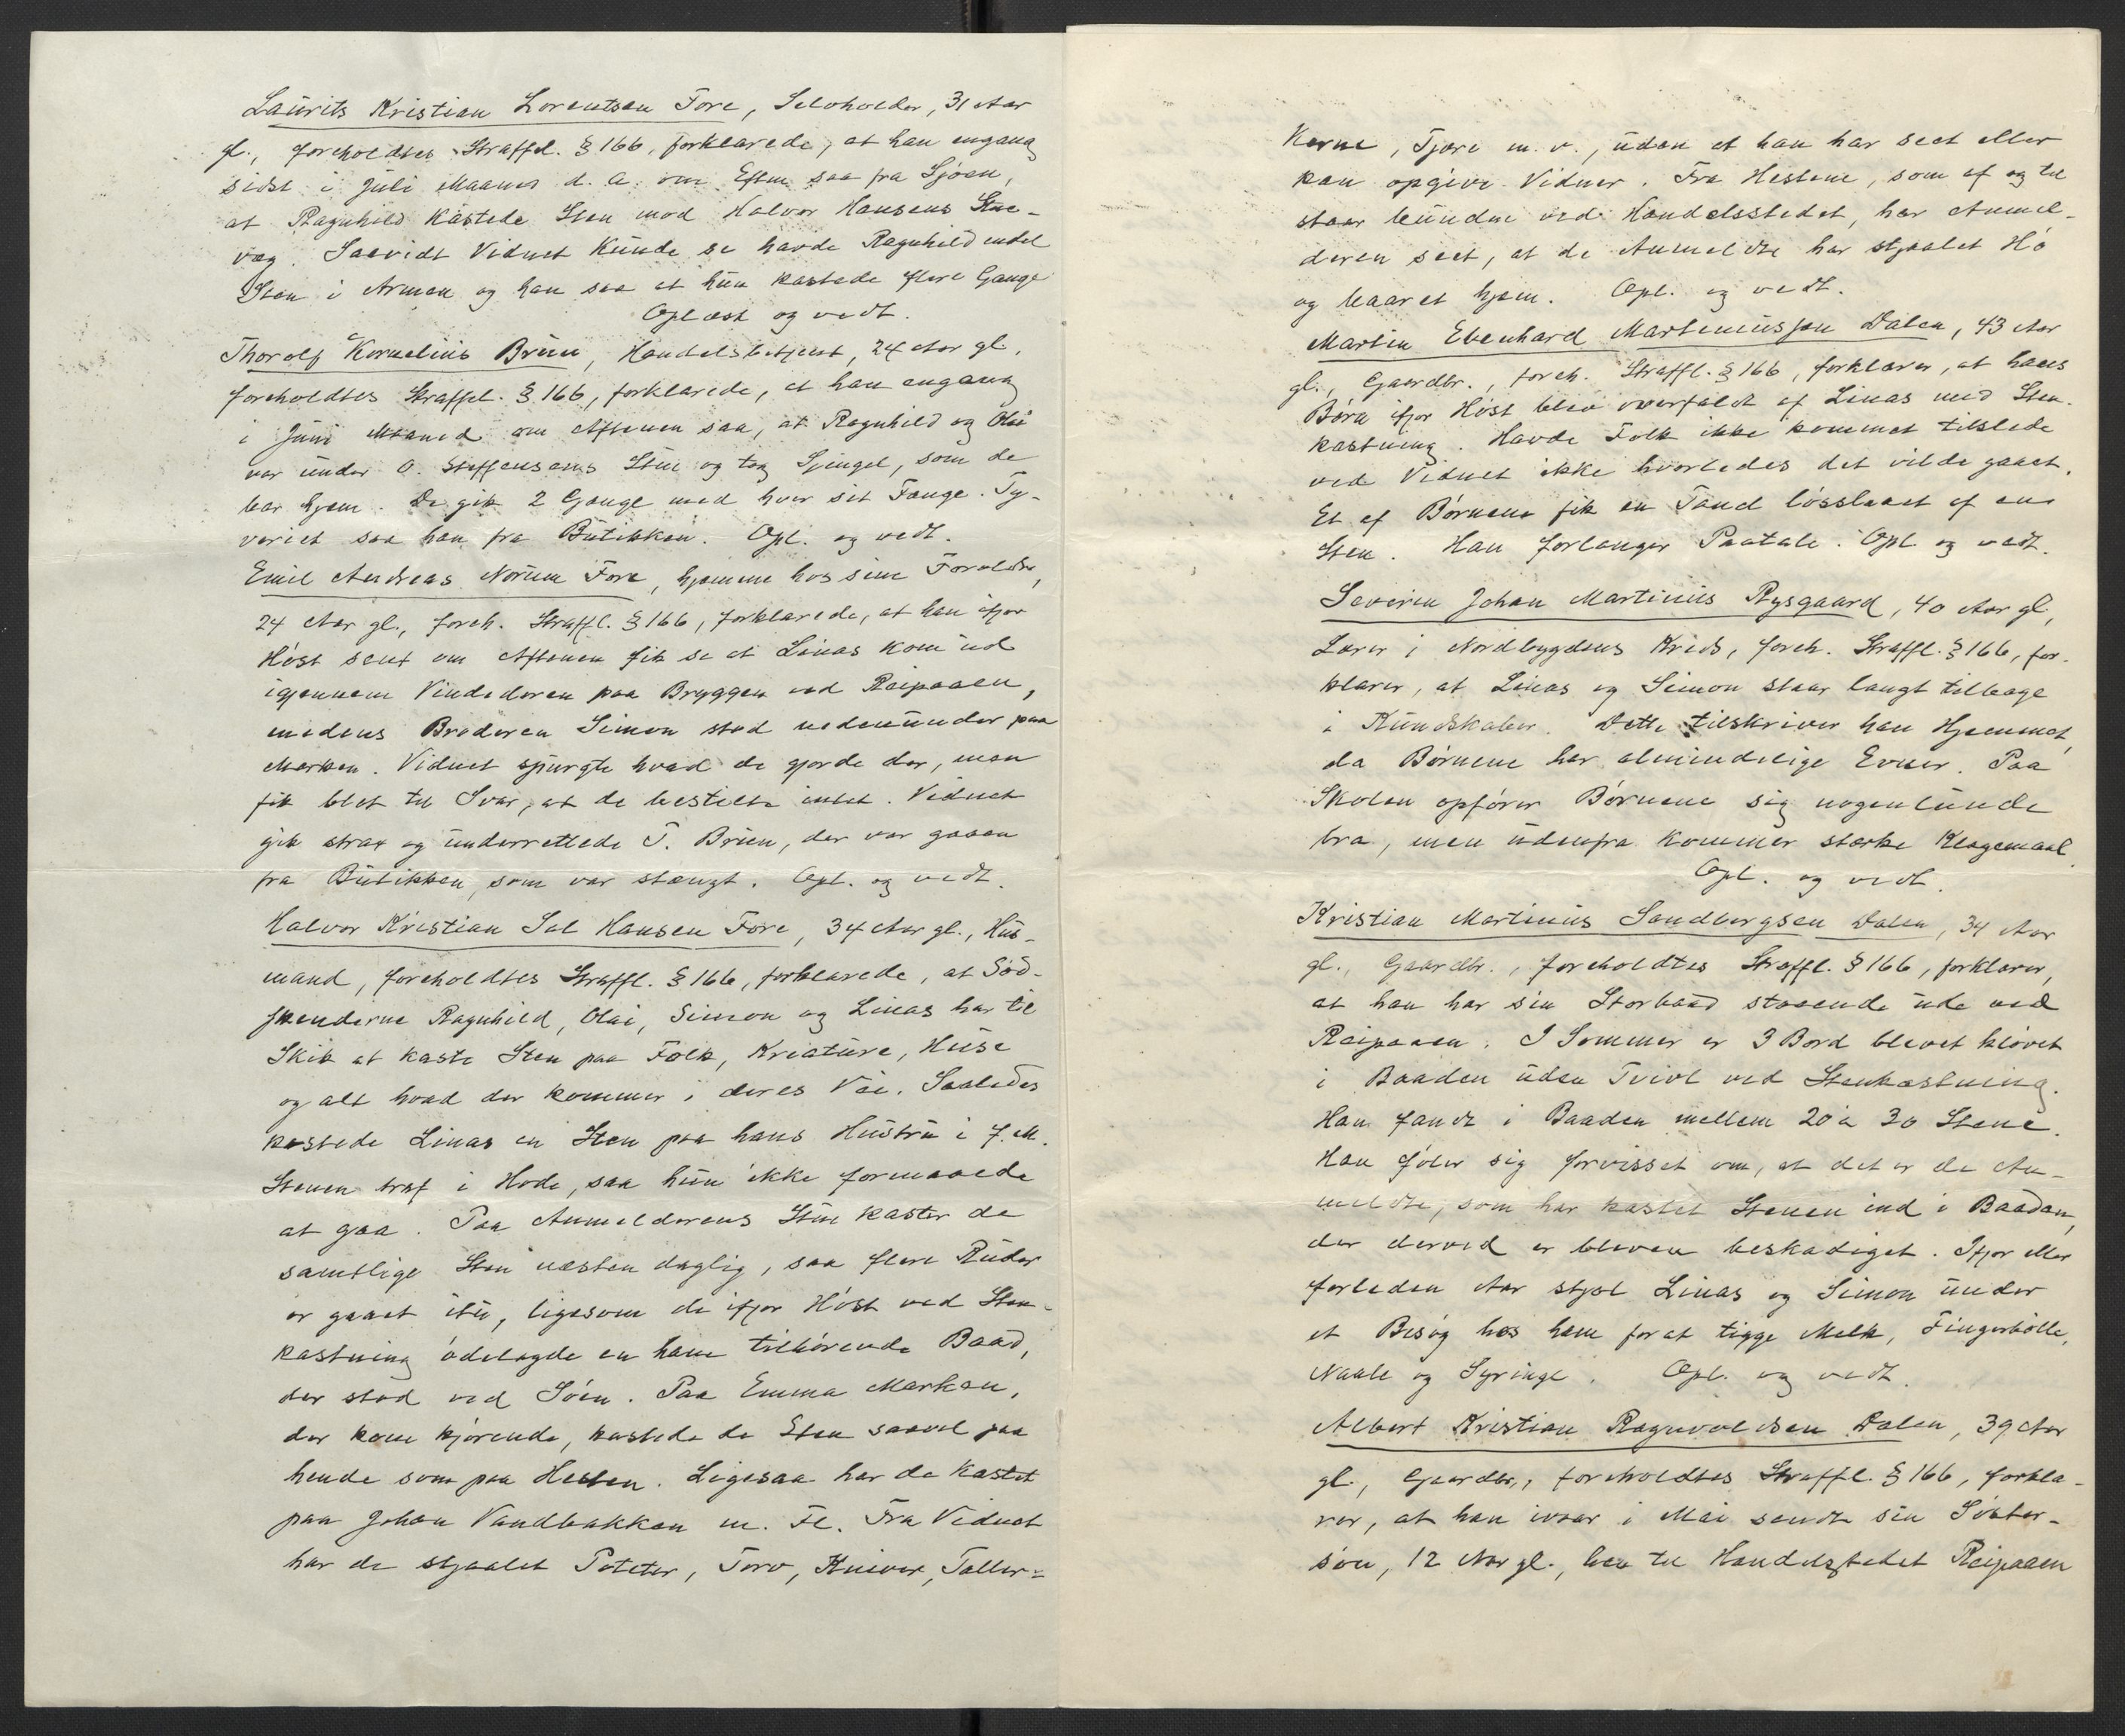 Laurits Kristian Lorentsen Fore, Selvholder, 31 Aar
gl., foreholdtes Straffel. § 166, forklarede, at han engang
sidst i Juli Maaned d. A. om Efterm saa fra Sjøen,
at Ragnhild kastede Sten mod Halvor Hansens Stue-
væg. Saavidt Vidnet kunde se havde Ragnhild endel
Sten i Armen og han saa at hun kastede flere Gange
Oplæst og vedt.
Thorolf Kornelius Bruun, Handelsbetjent, 24 Aar gl.
foreholdtes Straffel. § 166, forklarede, at han engang
i Juni Maaned om Aftenen saa, at Ragnhild og Olai
var under O. Steffensens Stue og tog Spingel, som de
bar hjem. De gik 2 Gange med hver sit Fange. Ty-
veriet saa han fra Butikken. Opl. og vedt.
Emil Andreas Norum Fore, hjemme hos sine Forældre,
24 Aar gl., foreh. Straffl. § 166, forklarede, at han ifjor
Høst sent om Aftenen fik se at Linas kom ud
igjennem Vindedøren paa Bryggen ved Reipaaen,
medens Broderen Simon stod nedenunder paa
Marken. Vidnet spurgte hvad de gjorde der, men
fik blot til Svar, at de bestilte intet. Vidnet
gik strax og underrettede T. Bruun, der var gaaen
fra Butikken, som var stængt. Opl. og vedt.
Halvor Kristian Sal Hansen Fore, 34 Aar gl., Hus-
mand, foreholdtes Straffl. § 166, forklarede, at Sød-
skenderne Ragnhild, Olai, Simon og Linas har til
Skik at kaste Sten paa Folk, Kriature, Huse
og alt hvad der kommer i deres Vei. Saaledes
kastede Linas en Sten paa hans Hustru i f. M.
Stenen traf i Hode, saa hun ikke formaaede
at gaa. Paa Anmelderens Stue kaster de
samtlige Sten næsten daglig, saa flere Ruder
er gaaet itu, ligesom de ifjor Høst ved Sten-
kastning ødelagde en ham tilhørende Baad,
der stod ved Søen. Paa Emma Markan,
der kom kjørende, kastede de Sten saavel paa
hende som paa Hesten. Ligesaa har de kastet
paa Johan Vandbakken m. Fl. Fra Vidnet
har de stjaalet Poteter, Torv, Kniver, Taller=
kerne, Tjære m. v., uden at han har seet eller
kan opgive Vidner. Fra Hestene, som af og til
staar bundne ved Handelsstedet, har Anmel-
deren seet, at de Anmeldte har stjaalet Hø
og baaret hjem. Opl. og vedt.
Martin Ebenhard Martinussen Dalen, 43 Aar
gl., Gaardbr., foreh. Straffl. § 166, forklarer, at hans
Børn ifjor Høst blev overfaldt af Linas med Sten-
kastning. Havde Folk ikke kommet tilstede
ved Vidnet ikke hvorledes det vilde gaaet.
Et af Børnene fik en Tand løsslaaet af en
Sten. Han forlanger Paatale. Opl og vedt.
Severin Johan Martinius Rysgaard, 40 Aar gl,
Lærer i Nordbygdens Kreds, foreh. Straffl. § 166, for-
klarer, at Linas og Simon staar langt tilbage
i Kundskaber. Dette tilskriver han Hjemmet,
da Børnene har almindelige Evner. Paa
Skolen opfører Børnene sig nogenlunde
bra, men udenfra kommer stærke Klagemaal.
Opl. og vedt.
Kristian Martinius Sandbergsen Dalen, 34 Aar
gl., Gaardbr., foreholdtes Straffl. § 166, forklarer,
at han har sin Storbaad staaende ude ved
Reipaaen. I Sommer er 3 Bord blevet kløvet
i Baaden uden Tvivl ved Stenkastning.
Han fandt i Baaden mellem 20 à 30 Stene.
Han føler sig forvisset om, at det er de An-
meldte, som har kastet Stenen ind i Baaden,
der derved er bleven beskadiget. Ifjor eller
forleden Aar stjal Linas og Simon under
et Besøg hos ham for at tigge Melk, Fingerbølle,
Naale og Syringe. Opl. og vedt.
Albert Kristian Ragnvaldsen Dalen, 39 Aar
gl., Gaardbr., foreholdtes Straffl. § 166, forkla-
rer, at han ivaar i Mai sendte sin Søster-
søn, 12 Aar gl., hen til Handelsstedet Reipaaen